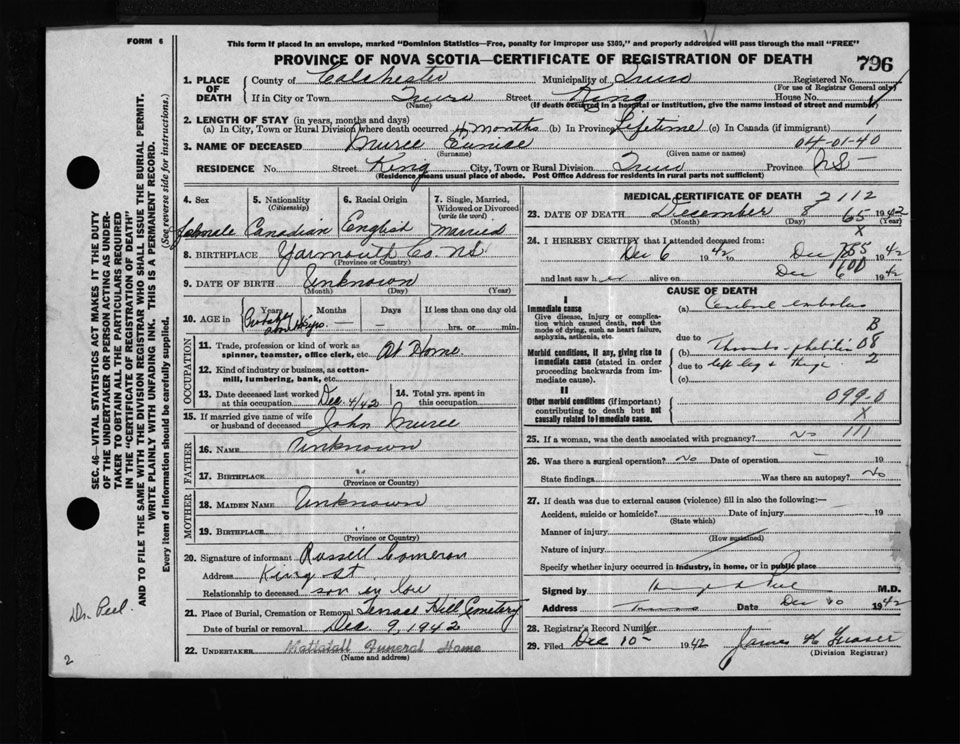 FORM 6
This form if placed in an envelope, marked "Dominion Statistics—Free, penalty for improper use $300," and properly addressed will pass through the mail "FREE"
PROVINCE OF NOVA SCOTIA—CERTIFICATE OF REGISTRATION OF DEATH 796
1. PLACE OF DEATH County of Colchester Municipality of Truro Registered No.
(For use of Registrar General only)
If in City or Town Truro Street King House No.
(Name) (If death occurred in a hospital or institution, give the name instead of street and number)
2. LENGTH OF STAY (in years, months and days)
(a) In City, Town or Rural Division where death occurred 4 months (b) In Province Lifetime (c) In Canada (if immigrant) 1
3. NAME OF DECEASED Eunice 04-01-40
(Surname) (Given name or names)
RESIDENCE No. Street King City, Town or Rural Division Truro Province NS —
(Residence means usual place of abode. Post Office Address for residents in rural parts not sufficient)
4. Sex 5. Nationality (Citizenship) 6. Racial Origin 7. Single, Married, Widowed or Divorced (write the word)
female Canadian English Married
8. BIRTHPLACE Yarmouth Co. NS
(Province or Country)
9. DATE OF BIRTH Unknown
(Month) (Day) (Year)
10. AGE in Years Months Days If less than one day old
hrs. or min.
Probably about
OCCUPATION
11. Trade, profession or kind of work as spinner, teamster, office clerk, etc. At Home
12. Kind of industry or business, as cotton-mill, lumbering, bank, etc.
13. Date deceased last worked at this occupation Dec. 4/42 14. Total yrs. spent in this occupation
15. If married give name of wife or husband of deceased John
FATHER
16. NAME Unknown
17. BIRTHPLACE "
(Province or Country)
MOTHER
18. MAIDEN NAME Unknown
19. BIRTHPLACE "
(Province or Country)
20. Signature of informant Russell Cameron
Address King St
Relationship to deceased son in law
21. Place of Burial, Cremation or Removal Terrace Hill Cemetery
Date of burial or removal Dec 9, 1942
22. UNDERTAKER Mattatall Funeral Home
(Name and address)
MEDICAL CERTIFICATE OF DEATH 2112
23. DATE OF DEATH December 8 1942
(Month) (Day) 65
X
24. I HEREBY CERTIFY that I attended deceased from:
Dec 6 1942 to Dec 1942
and last saw her alive on Dec 1942
CAUSE OF DEATH
I
Immediate cause
Give disease, injury, or complication which caused death, not the mode of dying, such as heart failure, asphyxia, asthenia, etc.
(a) Cerebral embolus
B
due to
Morbid conditions, if any, giving rise to immediate cause (stated in order proceeding backwards from immediate cause).
(b) 08
due to left leg & thigh 2
(c)
II
Other morbid conditions (if important) contributing to death but not causally related to immediate cause.
099.0
X
25. If a woman, was the death associated with pregnancy? No 111
26. Was there a surgical operation? No Date of operation — 19
State findings Was there an autopsy? No
27. If death was due to external causes (violence) fill in also the following:—
Accident, suicide or homicide? Date of injury — 19
(State which)
Manner of injury
(How sustained)
Nature of injury
Specify whether injury occurred in industry, in home, or in public place
Signed by M.D.
Address Truro Date Dec 10 1942
28. Registrar's Record Number
29. Filed Dec 10th 1942 James
(Division Registrar)
SEC. 46—VITAL STATISTICS ACT MAKES IT THE DUTY
OF THE UNDERTAKER OR PERSON ACTING AS UNDER-
TAKER TO OBTAIN ALL THE PARTICULARS REQUIRED
IN THE "CERTIFICATE OF REGISTRATION OF DEATH"
AND TO FILE THE SAME WITH THE DIVISION REGISTRAR WHO SHALL ISSUE THE BURIAL PERMIT.
WRITE PLAINLY WITH UNFADING INK. THIS IS A PERMANENT RECORD.
Every item of information should be carefully supplied. (See reverse side for instructions).
Dr. Peel.
2